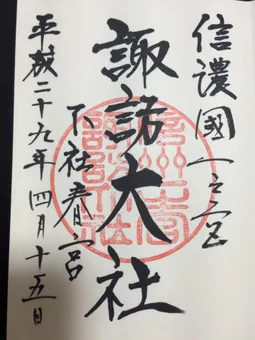 信濃國一之宮
諏訪大社
下社春宮
平成二十九年四月十五日